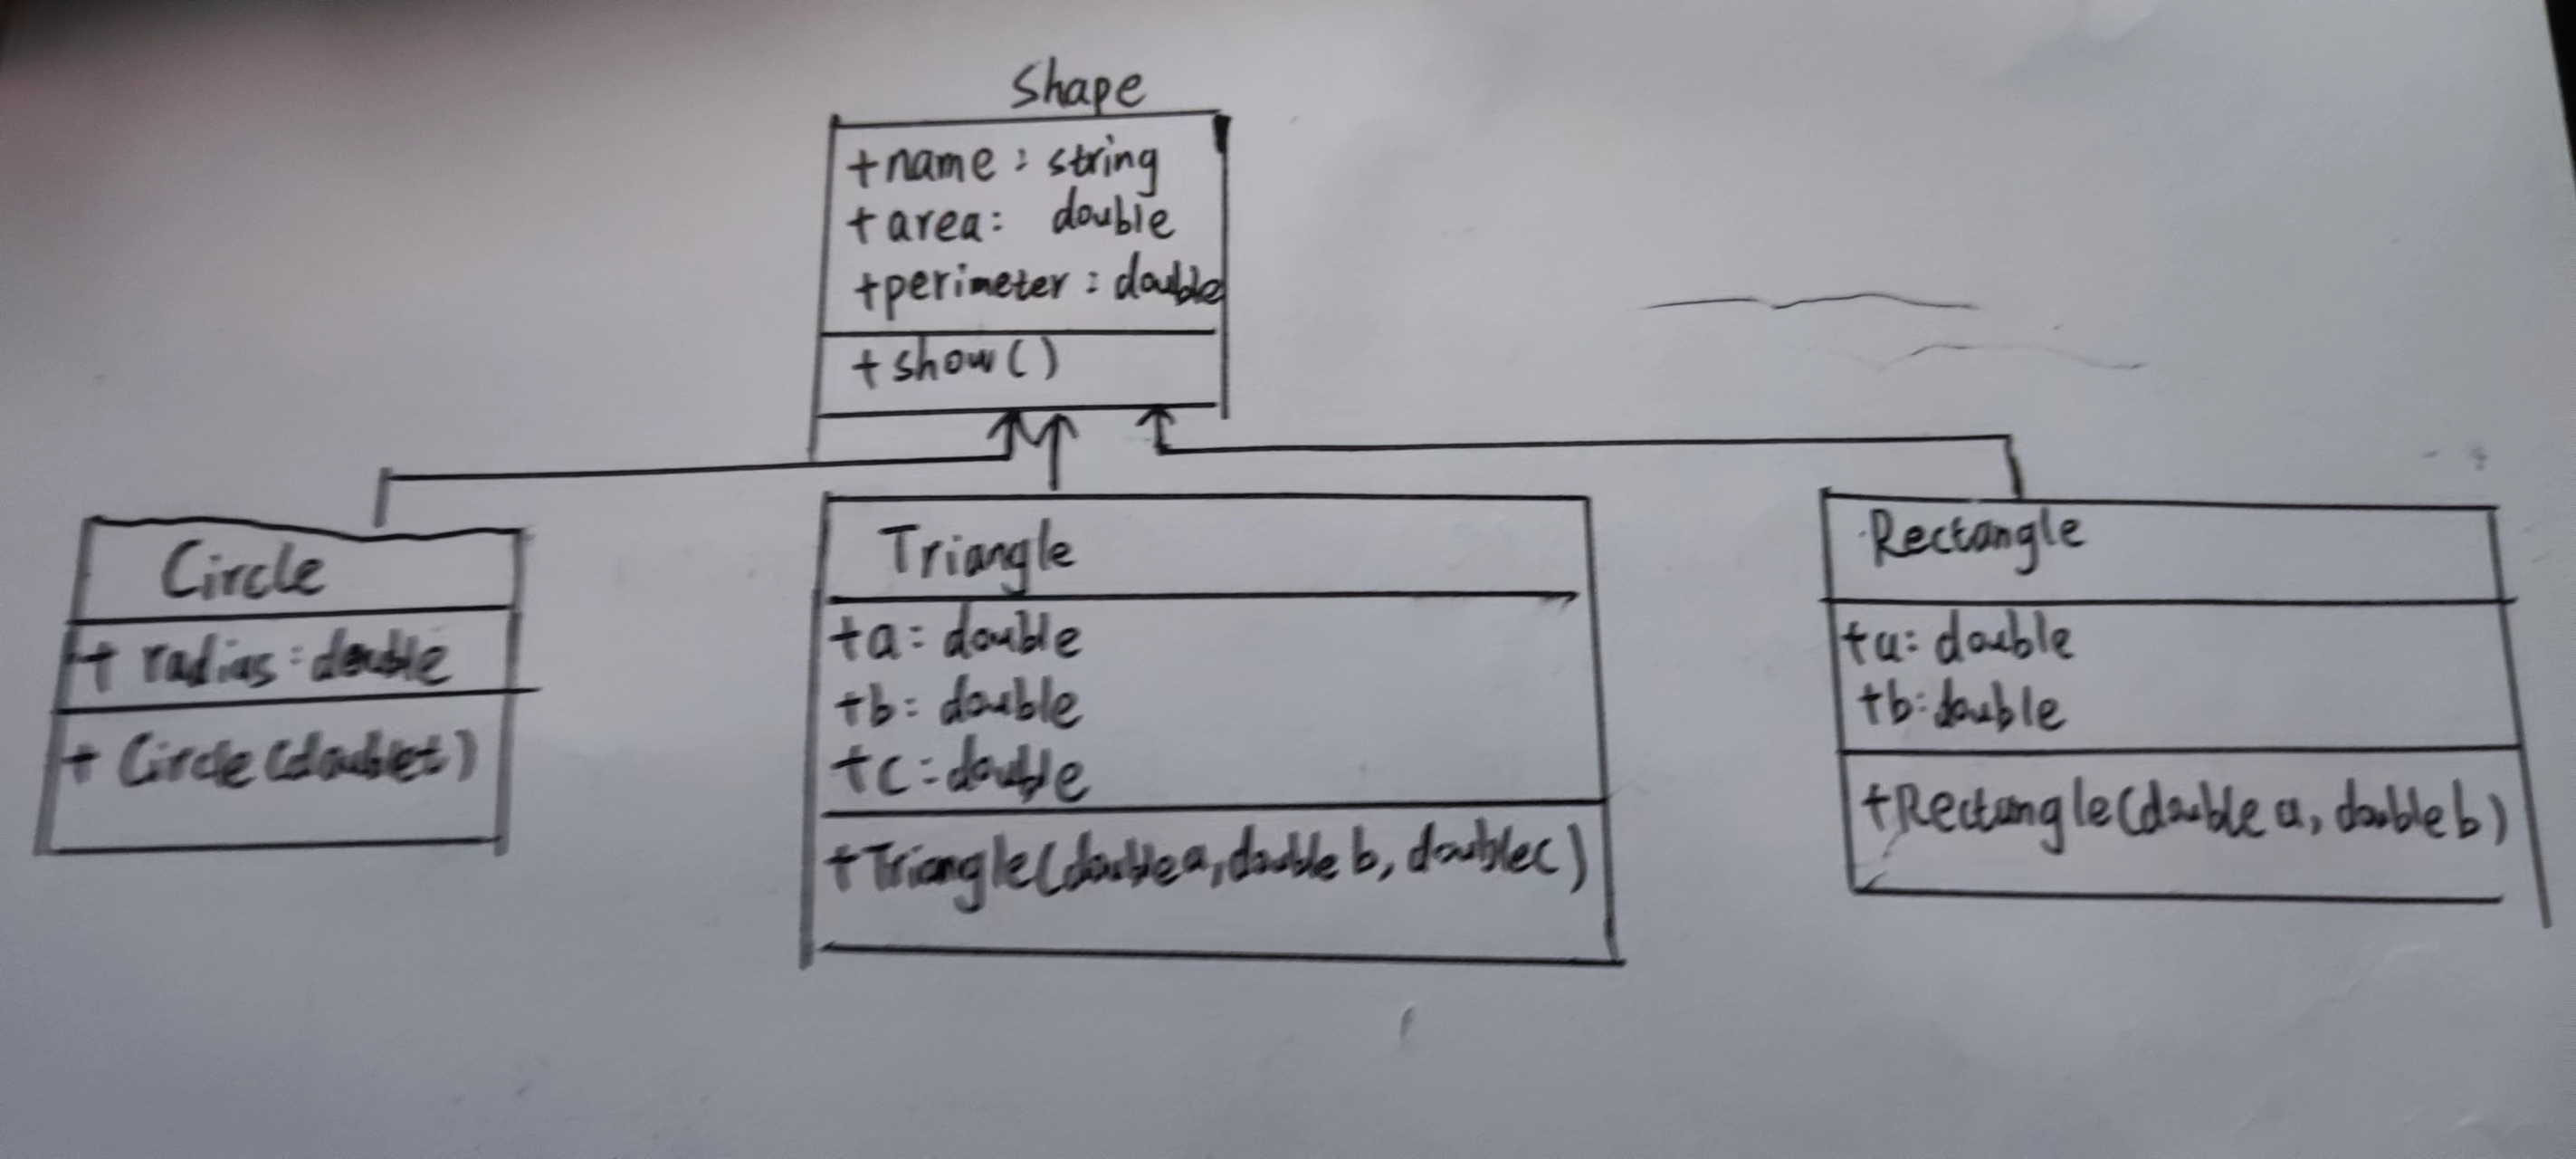 Shape
+name: string
+area: double
+perimeter: double
+show()
Circle
+ radius: double
+ Circle(double
Triangle
+a: double
+b: double
+c: double
+Triangle(double a, double b, double c)
Rectangle
+a: double
+b: double
+Rectangle(double a, double b)